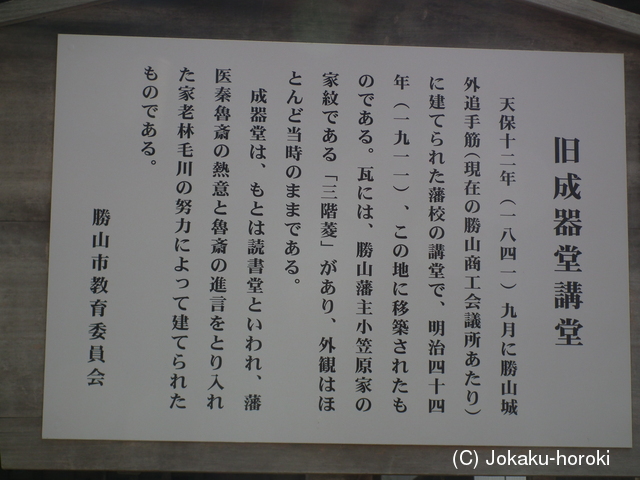 旧成器堂講堂
天保十二年（一八四一）九月に勝山城
外追手筋（現在の勝山商工会議所あたり）
に建てられた藩校の講堂で、明治四十四
年（一九一一）、この地に移築されたも
のである。瓦には、勝山藩主小笠原家の
家紋である「三階菱」があり、外観はほ
とんど当時のままである。
成器堂は、もとは読書堂といわれ、藩
医秦魯斎の熱意と魯斎の進言をとり入れ
た家老林毛川の努力によって建てられた
ものである。
勝山市教育委員会
(C) Jokaku-horoki